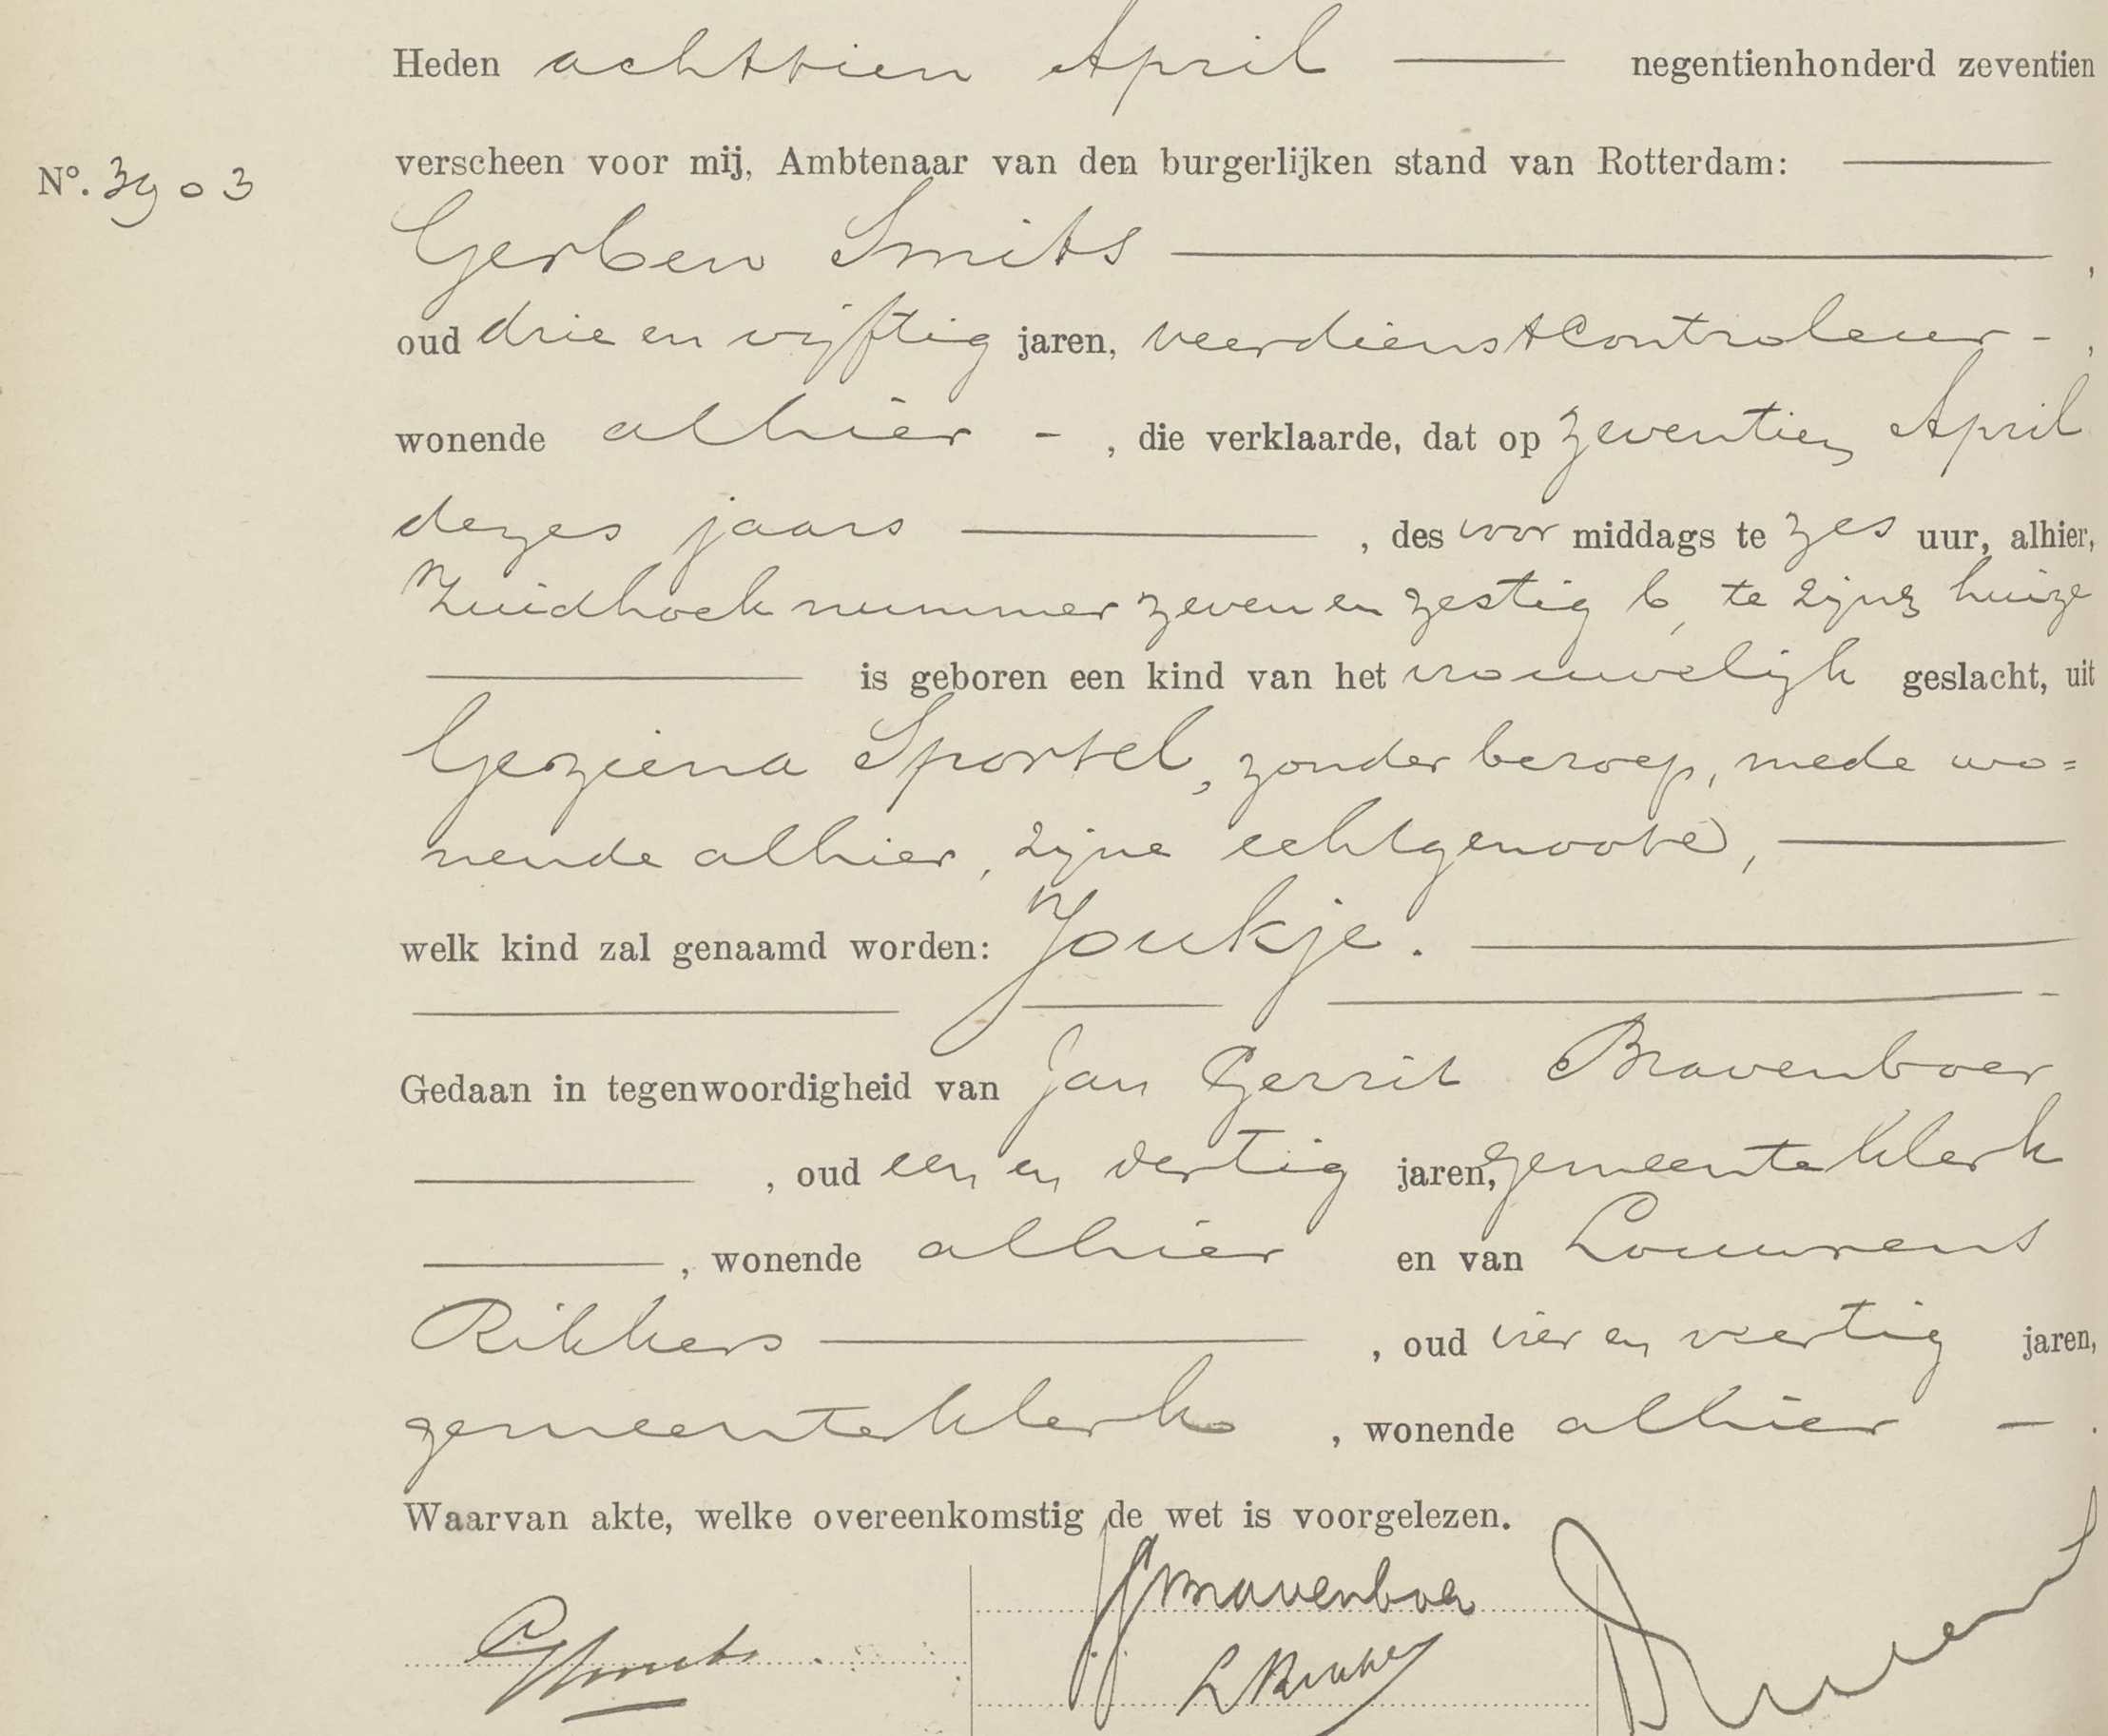 Heden achttien April negentienhonderd zeventien
verscheen voor mij, Ambtenaar van den burgerlijken stand van Rotterdam:
Nº. 3903
Gerben Smits ,
oud drie en vijftig jaren, veerdienstcontroleur - ,
wonende alhier - , die verklaarde, dat op zeventien April
dezes jaars , des voor middags te zes uur, alhier,
Zuidhoek nummer zeven en zestig b, te zijnen huize
is geboren een kind van het vrouwelijk geslacht, uit
Geziena Sportel, zonder beroep, mede wo=
nende alhier, zijne echtgenoote,
welk kind zal genaamd worden: Joukje.
Gedaan in tegenwoordigheid van Jan Gerrit Bravenboer
, oud een en dertig jaren, gemeenteklerk
, wonende alhier en van Lourens
Rikkers , oud vier en veertig jaren,
gemeenteklerk , wonende alhier - .
Waarvan akte, welke overeenkomstig de wet is voorgelezen.
JGBravenboer
GSmits
LRikkers